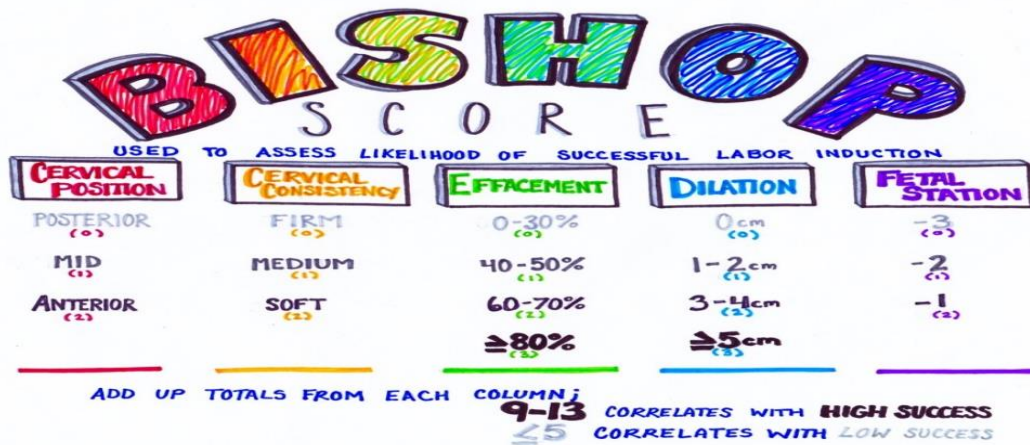 BISHOP
SCORE
USED TO ASSESS LIKELIHOOD OF SUCCESSFUL LABOR INDUCTION
CERVICAL POSITION CERVICAL CONSISTENCY EFFACEMENT DILATION FETAL STATION
POSTERIOR FIRM 0-30% 0cm -3
(0) (0) (0) (0) (0)
MID MEDIUM 40-50% 1-2cm -2
(1) (1) (1) (1) (1)
ANTERIOR SOFT 60-70% 3-4cm -1
(2) (2) (2) (2) (2)
≥80% ≥5cm
(3) (3)
ADD UP TOTALS FROM EACH COLUMN;
9-13 CORRELATES WITH HIGH SUCCESS
≤5 CORRELATES WITH LOW SUCCESS